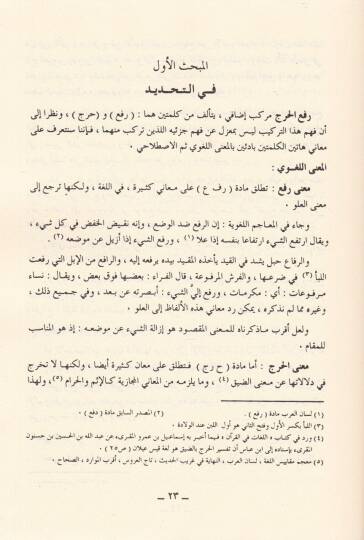 المبحث الأول
في التحديد
رفع الحرج مركب إضافي ، يتألف من كلمتين هما : ( رفع ) و ( حرج ) ، ونظرا إلى
أن فهم هذا التركيب ليس بمعزل عن فهم جزئيه اللذين تركب منهما ، فإننا سنتعرف على
معاني هاتين الكلمتين بادئين بالمعنى اللغوي ثم الاصطلاحي .
المعنى اللغوي :
معنى رفع : تطلق مادة ( رف ع ) على معاني كثيرة ، في اللغة ، ولكنها ترجع إلى
معنى العلو .
وجاء في المعاجم اللغوية : إن الرفع ضد الوضع ، وإنه نقيض الخفض في كل شيء ،
ويقال ارتفع الشيء ارتفاعا بنفسه إذا علا (١) ، ورفع الشيء إذا أزيل عن موضعه (٢) .
والرفاع حبل يشد في القيد يأخذه المقيد بيده يرفعه إليه ، والرافع من الإبل التي رفعت
اللبأ (٣) في ضرعها ، والفرش المرفوعة ، قال الفراء : بعضها فوق بعض ، ويقال : نساء
مرفوعات : أي : مكرمات ، ورفع إليّ الشيء : أبصرته عن بعد ، وفي جميع ذلك ،
وغيره مما لم نذكره ، يمكن رد معاني هذه الألفاظ إلى العلو .
ولعل أقرب ماذكرناه للمعنى المقصود هو إزالة الشيء عن موضعه : إذ هو المناسب
للمقام .
معنى الحرج : أما مادة ( ح رج ) فتطلق على معان كثيرة أيضا ، ولكنها لا تخرج
في دلالاتها عن معنى الضيق (٤) ، وما يلزمه من المعاني المجازية كالإثم والحرام (٥)، ولهذا
(١) لسان العرب مادة ( رفع ) . (٢) المصدر السابق مادة ( دفع ) .
(٣) اللبأ بكسر الأول وفتح الثاني هو أول اللبن عند الولادة .
(٤) ورد في كتاب « اللغات في القرآن » فيما أخبر به إسماعيل بن عمرو المقرىء عن عبد الله بن الحسين بن حسنون
المقرىء بإسناده إلى ابن عباس أن تفسير الحرج بالضيق هو لغة قيس عيلان ( ص٢٥ ) .
(٥) معجم مقاييس اللغة ، لسان العرب ، النهاية في غريب الحديث ، تاج العروس ، أقرب الموارد ، الصحاح .
ــ ٢٣ ــ